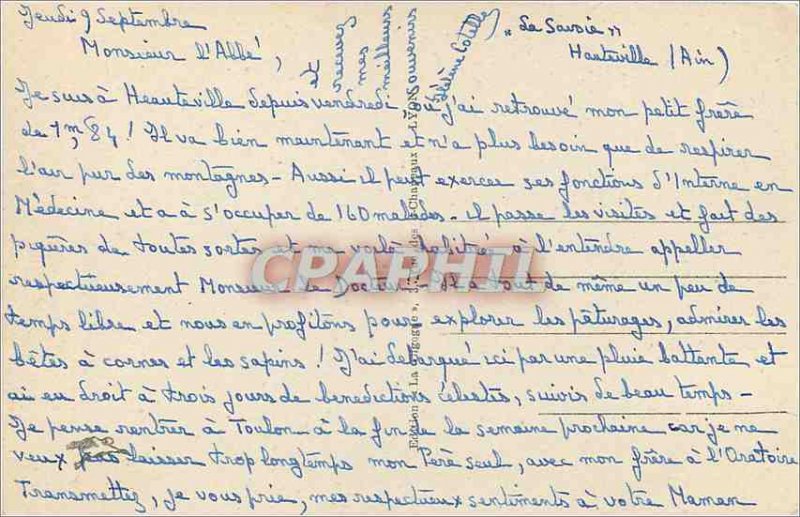 Jeudi 9 Septembre
"La Savoie"
Hauteville (Ain)
Monsieur l'Abbé,
Je suis à Heauteville depuis vendredi où j'ai retrouvé mon petit frère
de 1m,84! Il va bien maintenant et n'a plus besoin que de respirer
l'air pur des montagnes - Aussi il peut exercer ses fonctions d'Interne en
Médecine et a à s'occuper de 160 malades - il passe les visites et fait des
piqûres de toutes sortes et me voilà habituée à l'entendre appeller
respectueusement Monsieur le Docteur - Il a tout de même un peu de
temps libre et nous en profitons pour explorer les pâturages, admirer les
bêtes à cornes et les sapins! J'ai debarqué ici par une pluie battante et
ai eu droit à trois jours de benedictions célestes, suivis de beau temps -
Je pense rentrer à Toulon à la fin de la semaine prochaine car je ne
veux pas laisser trop longtemps mon Père seul, avec mon frère à l'Oratoire
Transmettez, je vous prie, mes respectueux sentiments à votre Maman
et
recevez
mes
meilleurs
souvenirs
Hélène Cotelle
Edition "La Cigogne",
LYON
CPAPHIL